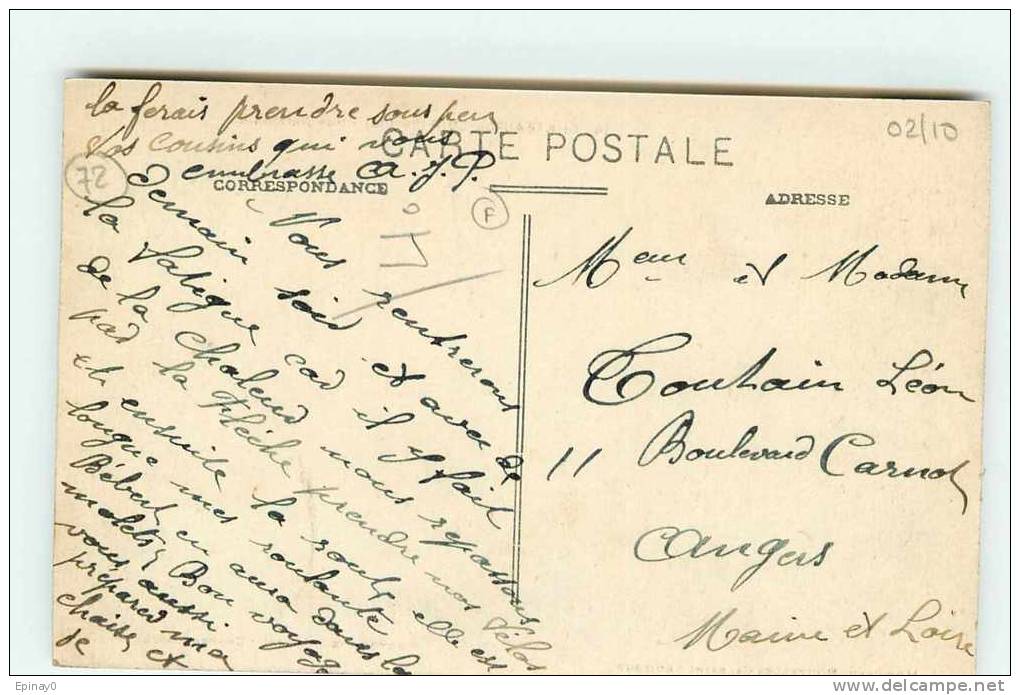 la ferais prendre sous peu
Vos cousins qui vous
embrasse A. J. P.
CARTE POSTALE
CORRESPONDANCE
ADRESSE
02/10
72
F
Nous rentrerons
demain soir et avec de
la fatigue car il y fait
de la chaleur nous repassons
par la Flèche prendre nos vélos
et ensuite la route elle est
longue mes roulante
Bébert en aura dans les
molets, Bon voyage
vous aussi
préparez ma
chaise et
je
Meur et Madame
Touhain Léon
11 Boulevard Carnot
Angers
Maine et Loire
Epinay0
www.delcampe.net